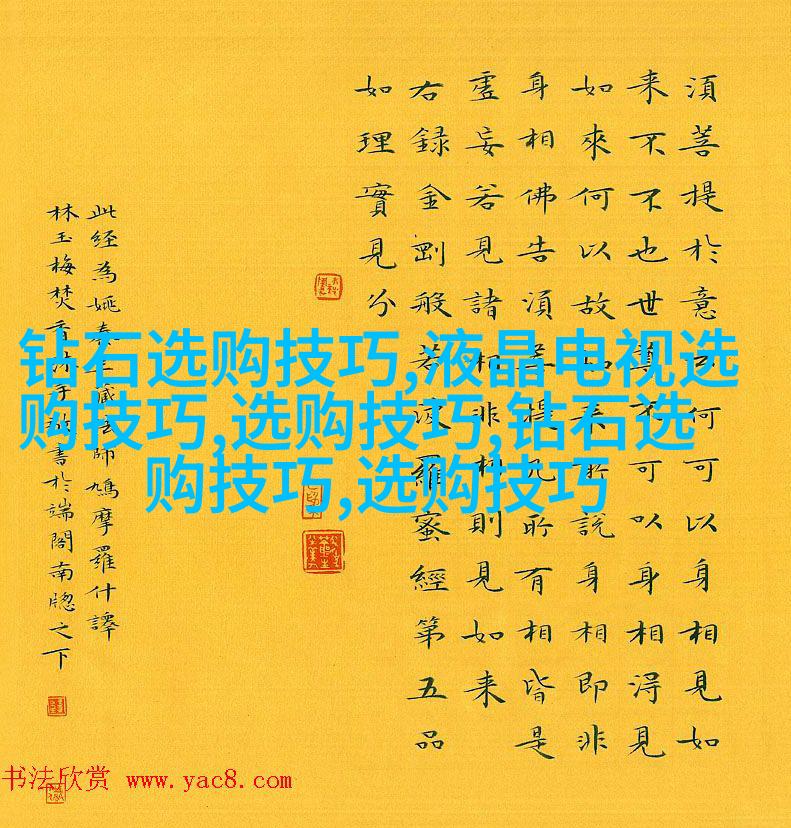 須菩提於意云何可以身相見如
来不不也世尊不可以身相得見
如來何以故如来所說身相即非
身相佛告須菩提凡所有相皆是
虛妄若見諸相非相則見如来
右録金剛般若波羅蜜經第五品
如理實見分
此経為姚秦三藏法師鳩摩羅什譯
林玉梅焚香沐手敬書於端閣南牕之下
钻石选购技巧,液晶电视选
购技巧,选购技巧,钻石选
购技巧,选购技巧
书法欣赏 www.yac8.com